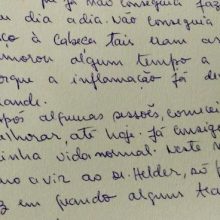 já não conseguia faz
dia a dia. Não conseguia
ço à cabeça tais eram a
morou algum tempo a
rque a inflamação já de
ande.
pós algumas sessões, comecei
elhorar, até hoje já consig
inha vida normal. Neste m
o a vir ao Sr. Helder, só
z em quando algum tra